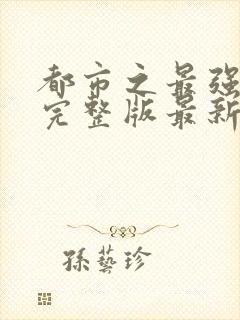 都市之最强
完整版最新
孫藝珍